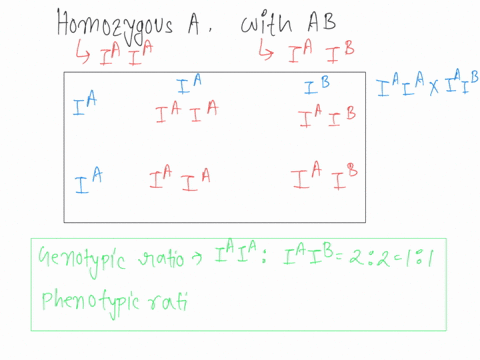 Homozygous A. with AB
↳ I^A I^A ↳ I^A I^B
I^A I^B I^A I^A × I^A I^B
I^A I^A I^A I^A I^B
I^A I^A I^A I^A I^B
Genotypic ratio → I^A I^A : I^A I^B = 2:2 = 1:1
Phenotypic rati